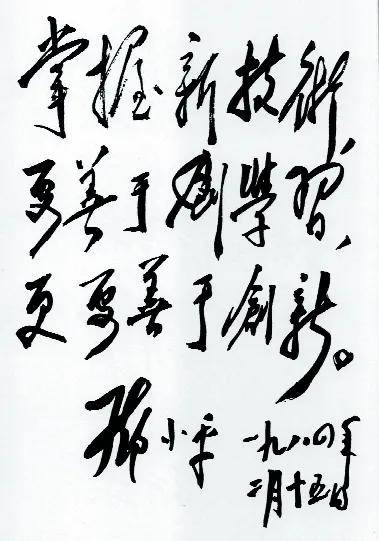 掌握新技術、
要善于學習、
更要善于創新。
鄧小平 一九八四年
二月十五日